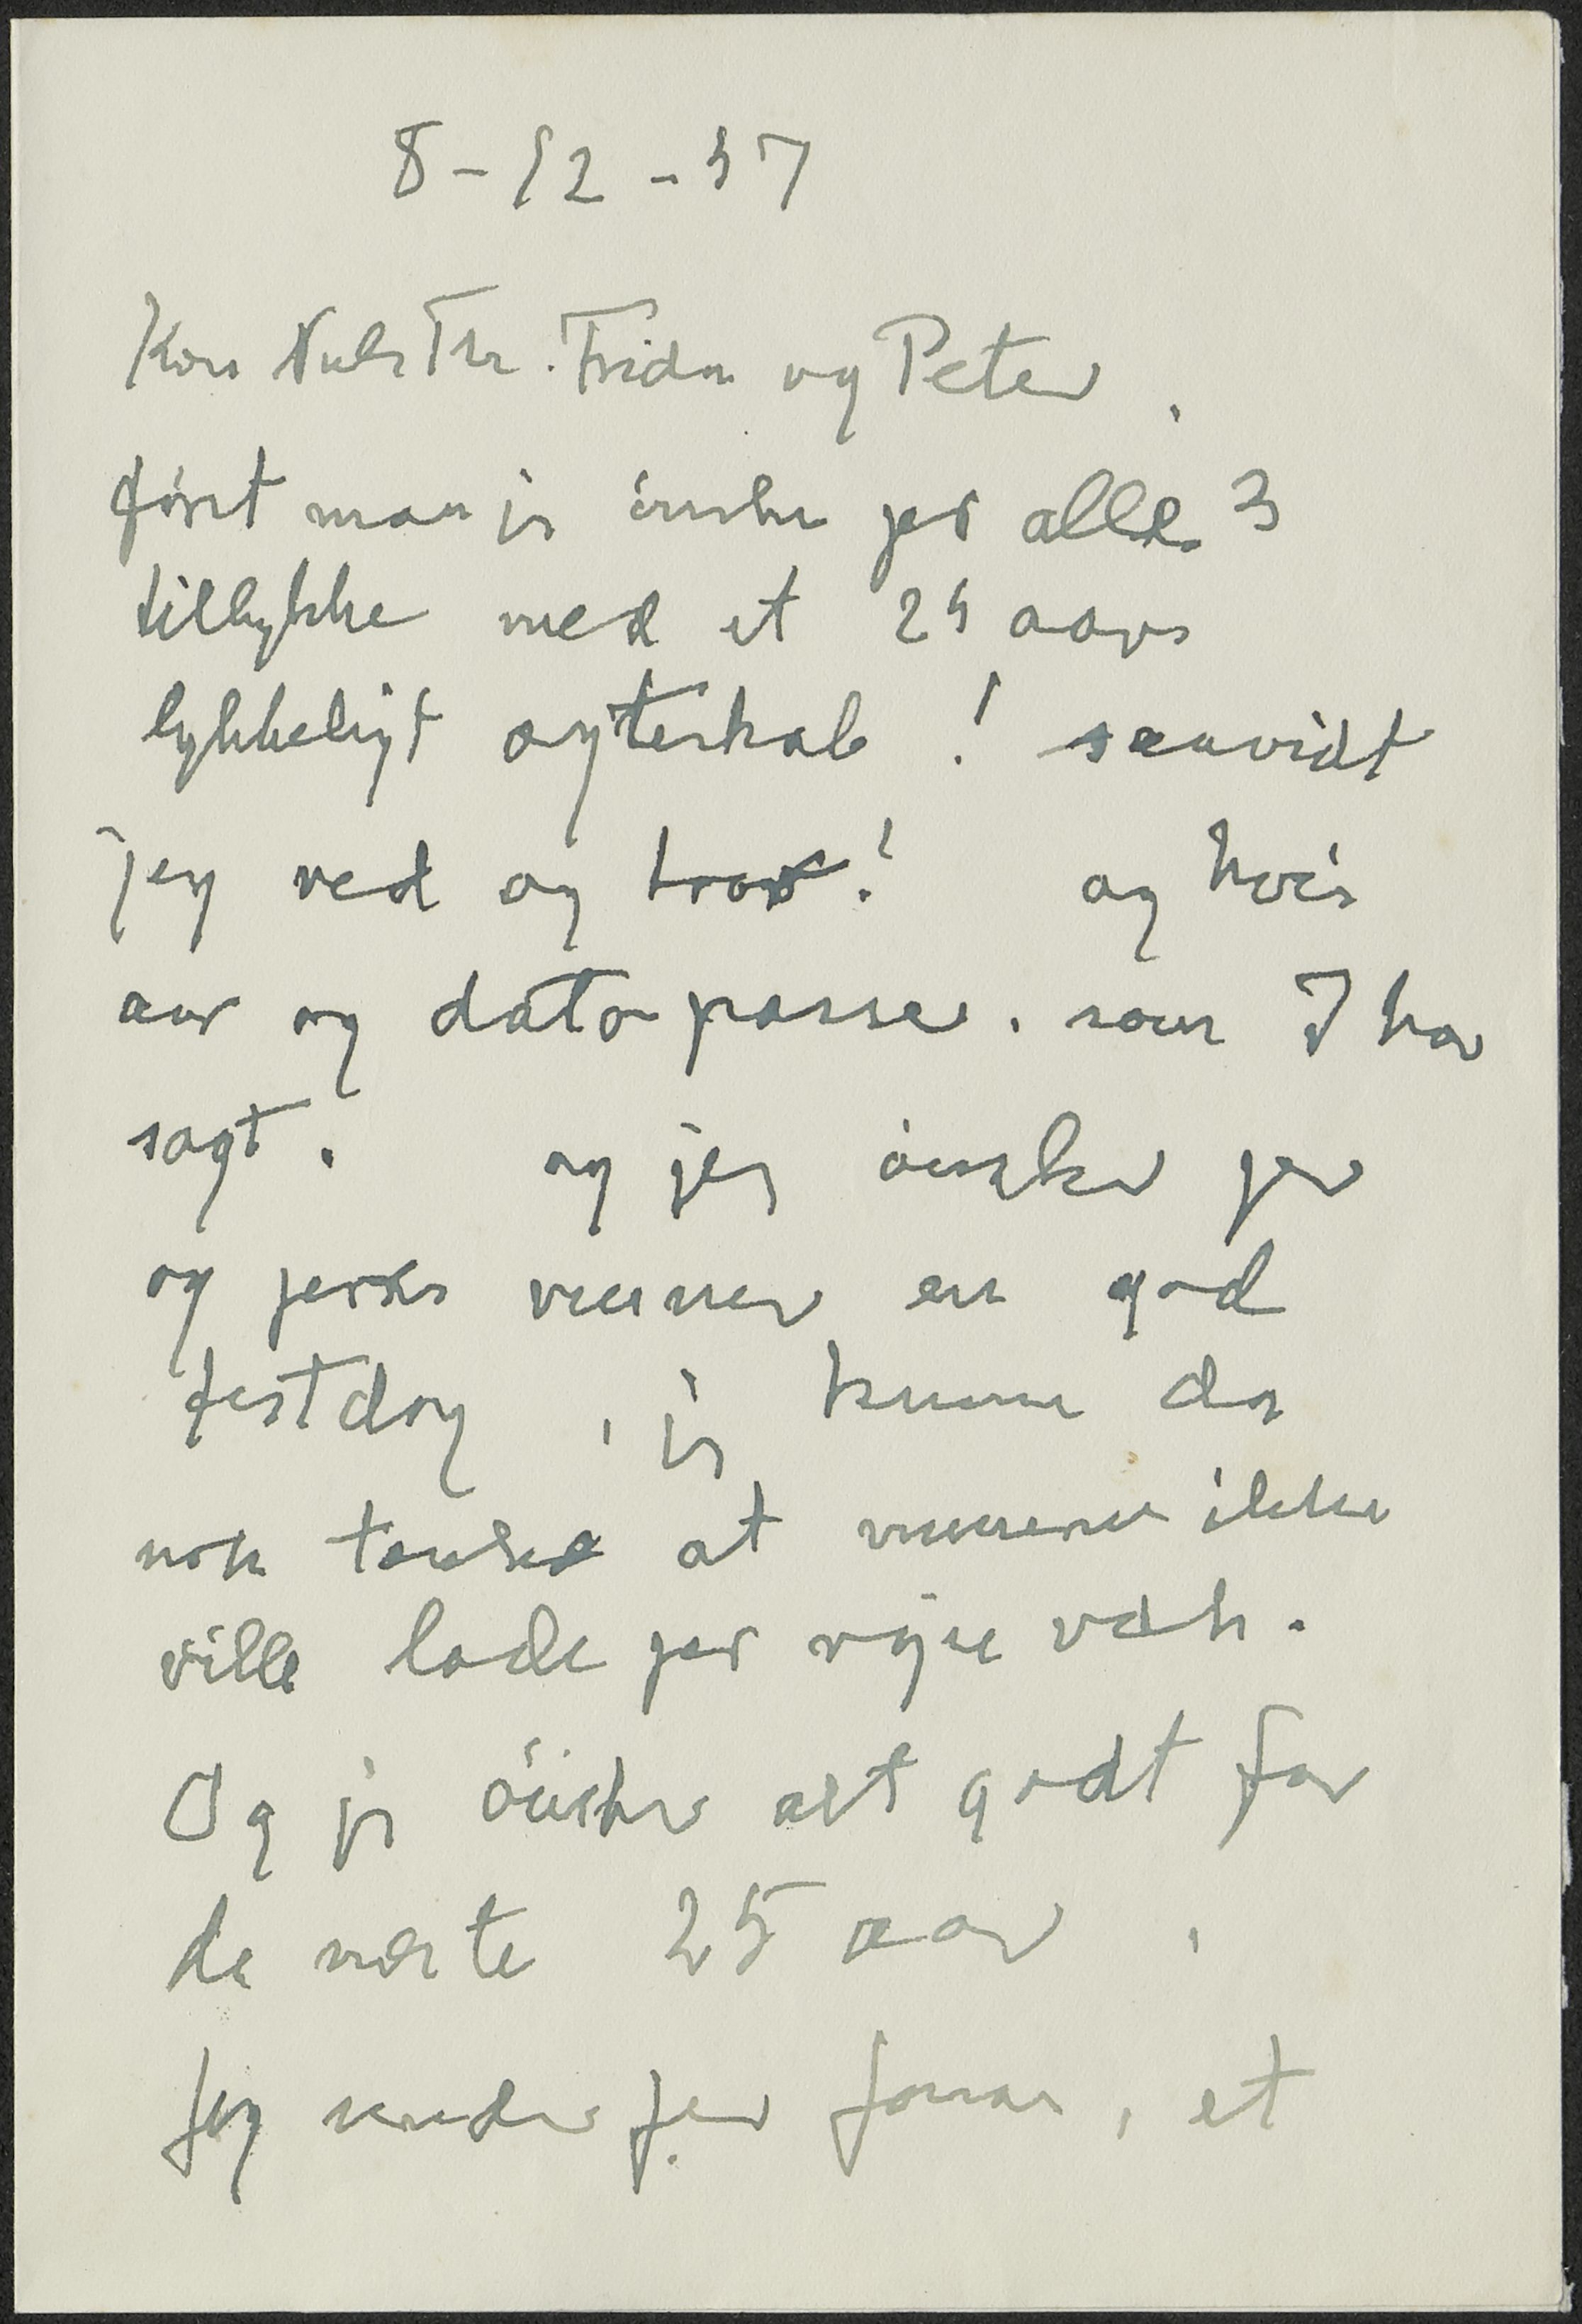 8-12-57
Kære Niels Th. Frida og Peter,
först maa jeg önske jer alle 3
tillykke med et 25 aars
lykkeligt ægteskab! saavidt
jeg ved og tror! og hvis
aar og dato passer. som I har
sagt. og jeg önsker jer
og jeres venner en god
festdag, jeg kunne da
nok tænke at vennerne ikke
ville lade jer rejse væk.
Og jeg önsker alt godt for
de næste 25 aar,
Jeg sender jer foran, et